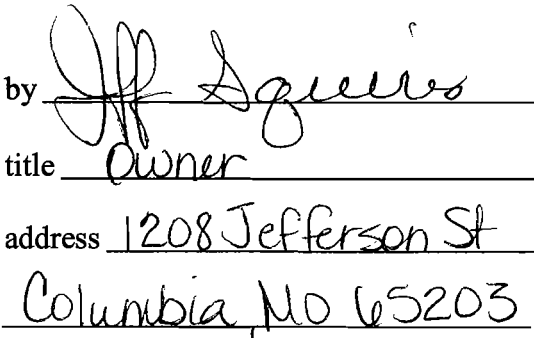 by Jeff Squires
title Owner
address 1208 Jefferson St
Columbia, MO 65203